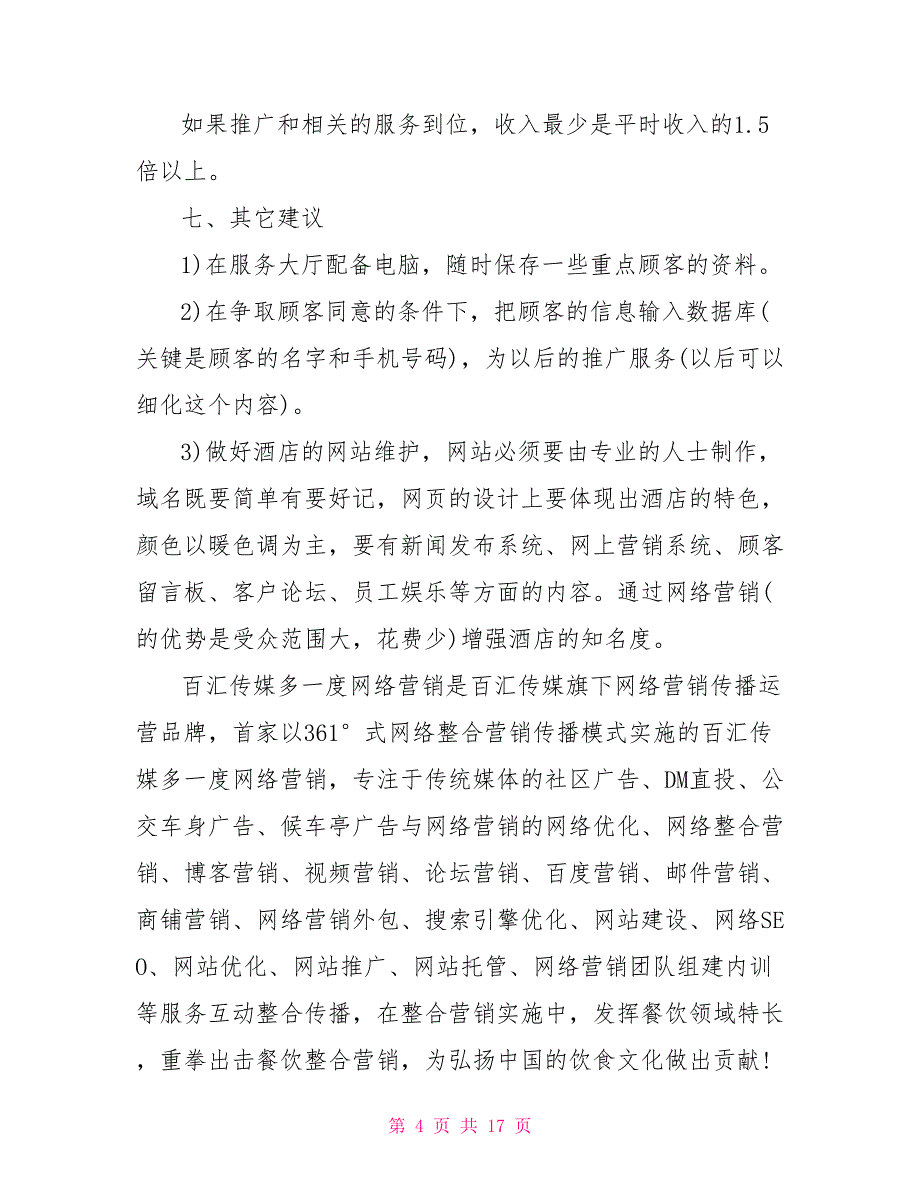 如果推广和相关的服务到位，收入最少是平时收入的1.5
倍以上。
七、其它建议
1)在服务大厅配备电脑，随时保存一些重点顾客的资料。
2)在争取顾客同意的条件下，把顾客的信息输入数据库(
关键是顾客的名字和手机号码)，为以后的推广服务(以后可以
细化这个内容)。
3)做好酒店的网站维护，网站必须要由专业的人士制作，
域名既要简单有要好记，网页的设计上要体现出酒店的特色，
颜色以暖色调为主，要有新闻发布系统、网上营销系统、顾客
留言板、客户论坛、员工娱乐等方面的内容。通过网络营销(
的优势是受众范围大，花费少)增强酒店的知名度。
百汇传媒多一度网络营销是百汇传媒旗下网络营销传播运
营品牌，首家以361°式网络整合营销传播模式实施的百汇传
媒多一度网络营销，专注于传统媒体的社区广告、DM直投、公
交车身广告、候车亭广告与网络营销的网络优化、网络整合营
销、博客营销、视频营销、论坛营销、百度营销、邮件营销、
商铺营销、网络营销外包、搜索引擎优化、网站建设、网络SE
O、网站优化、网站推广、网站托管、网络营销团队组建内训
等服务互动整合传播，在整合营销实施中，发挥餐饮领域特长
，重拳出击餐饮整合营销，为弘扬中国的饮食文化做出贡献!
第 4 页 共 17 页